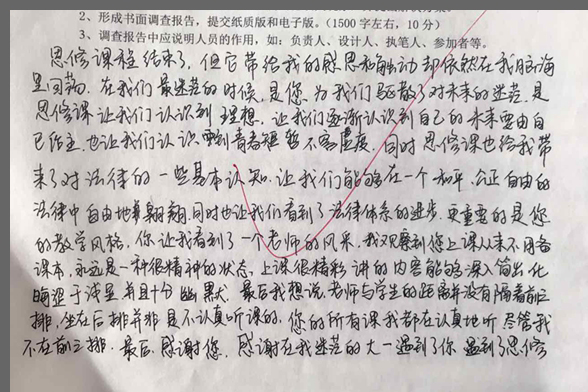 2、形成书面调查报告，提交纸质版和电子版。（1500字左右，10分）
3、调查报告中应说明人员的作用，如：负责人、设计人、执笔人、参加者等。
思修课程结束了，但它带给我的感思和触动却依然在我脑海
里回荡。在我们最迷茫的时候，是您，为我们驱散了对未来的迷茫，是
思修课让我们认识到理想，让我们逐渐认识到自己的未来要由自
己作主，也让我们认识到青春短暂不容虚度，同时思修课也给我带
来了对法律的一些基本认知，让我们能够在一个和平，公正自由的
法律中自由地翱翔，同时也让我们看到了法律体系的进步，更重要的是您
的教学风格，你让我看到了一个老师的风采，我观察到您上课从来不用备
课本，永远是一种很精神的状态，上课很精彩讲的内容能够深入简出化
晦涩于浅显并且十分幽默，最后我想说，老师与学生的距离并没有隔着前三
排，坐在后排并非是不认真听课的，您的所有课我都在认真地听，尽管我
不在前三排，最后，感谢您，感谢在我迷茫的大一遇到了你遇到了思修